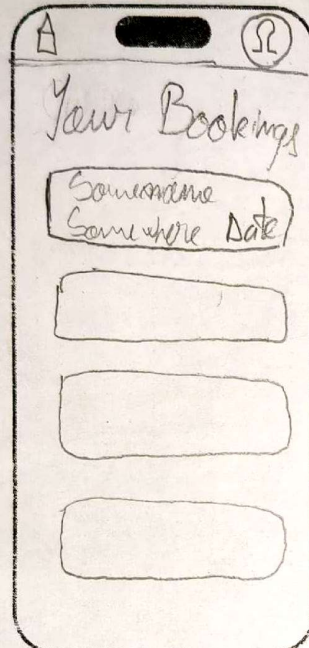 Your Bookings
Somename
Somewhere Date